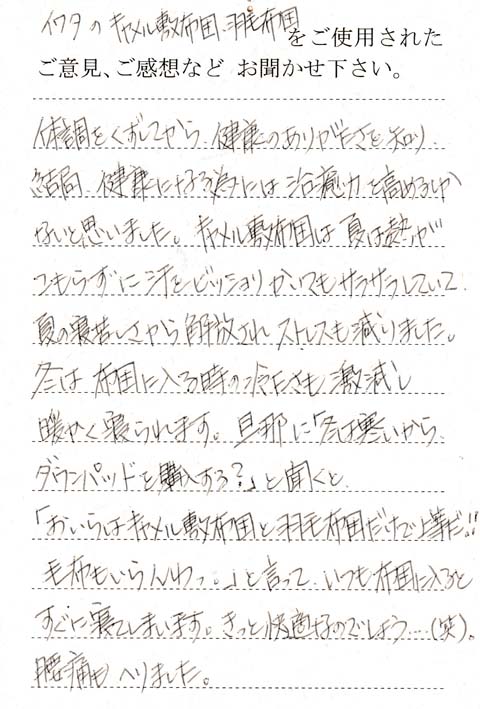 イワタの キャメル敷布団、羽毛布団をご使用された
ご意見、ご感想など お聞かせ下さい。
体調をくずしてから、健康のありがたさを知り
結局、健康になる為には治癒力を高めるしか
ないと思いました。キャメル敷布団は夏は熱が
つもらずに汗をビッショリかいてもサラサラしていて、
夏の寝苦しさから解放されストレスも減りました。
冬は 布団に入る時の冷たさも激減し
暖かく寝られます。旦那に「冬は寒いから、
ダウンパッドを購入する？」と聞くと
「おいらはキャメル敷布団と羽毛布団だけで上等だ!!
毛布もいらんわっ。」と言って、いつも布団に入ると
すぐに寝てしまいます。きっと快適なのでしょう…(笑)。
腰痛も へりました。